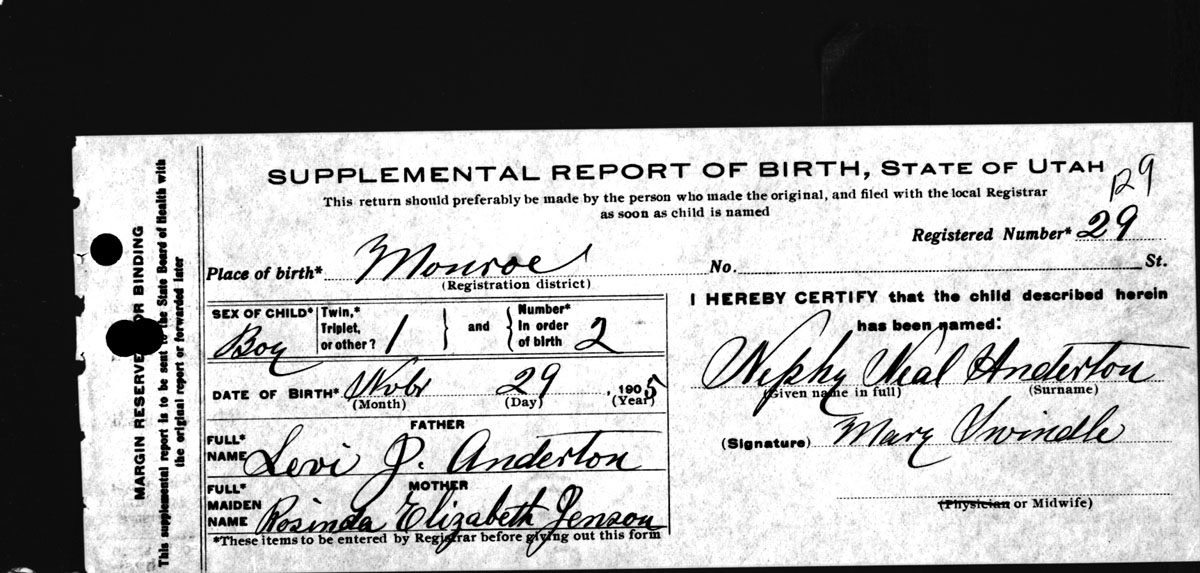 SUPPLEMENTAL REPORT OF BIRTH, STATE OF UTAH
129
This return should preferably be made by the person who made the original, and filed with the local Registrar
as soon as child is named
Registered Number* 29
Place of birth* Monroe No. St.
(Registration district)
MARGIN RESERVED FOR BINDING
This supplemental report is to be sent to the State Board of Health with
the original report or forwarded later
SEX OF CHILD* Boy
Twin,*
Triplet,
or other? 1
and
Number*
In order
of birth 2
DATE OF BIRTH* Novbr 29, 1905
(Month) (Day) (Year)
FATHER
FULL*
NAME Levi J. Anderton
MOTHER
FULL*
MAIDEN
NAME Rosinda Elizabeth Jenson
*These items to be entered by Registrar before giving out this form
I HEREBY CERTIFY that the child described herein
has been named:
Nephy Neal Anderton
(Given name in full) (Surname)
(Signature) Mary Swindle
(Physician or Midwife)